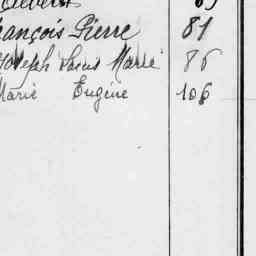 François Pierre 81
Joseph Louis Marie 86
Marie Eugène 106